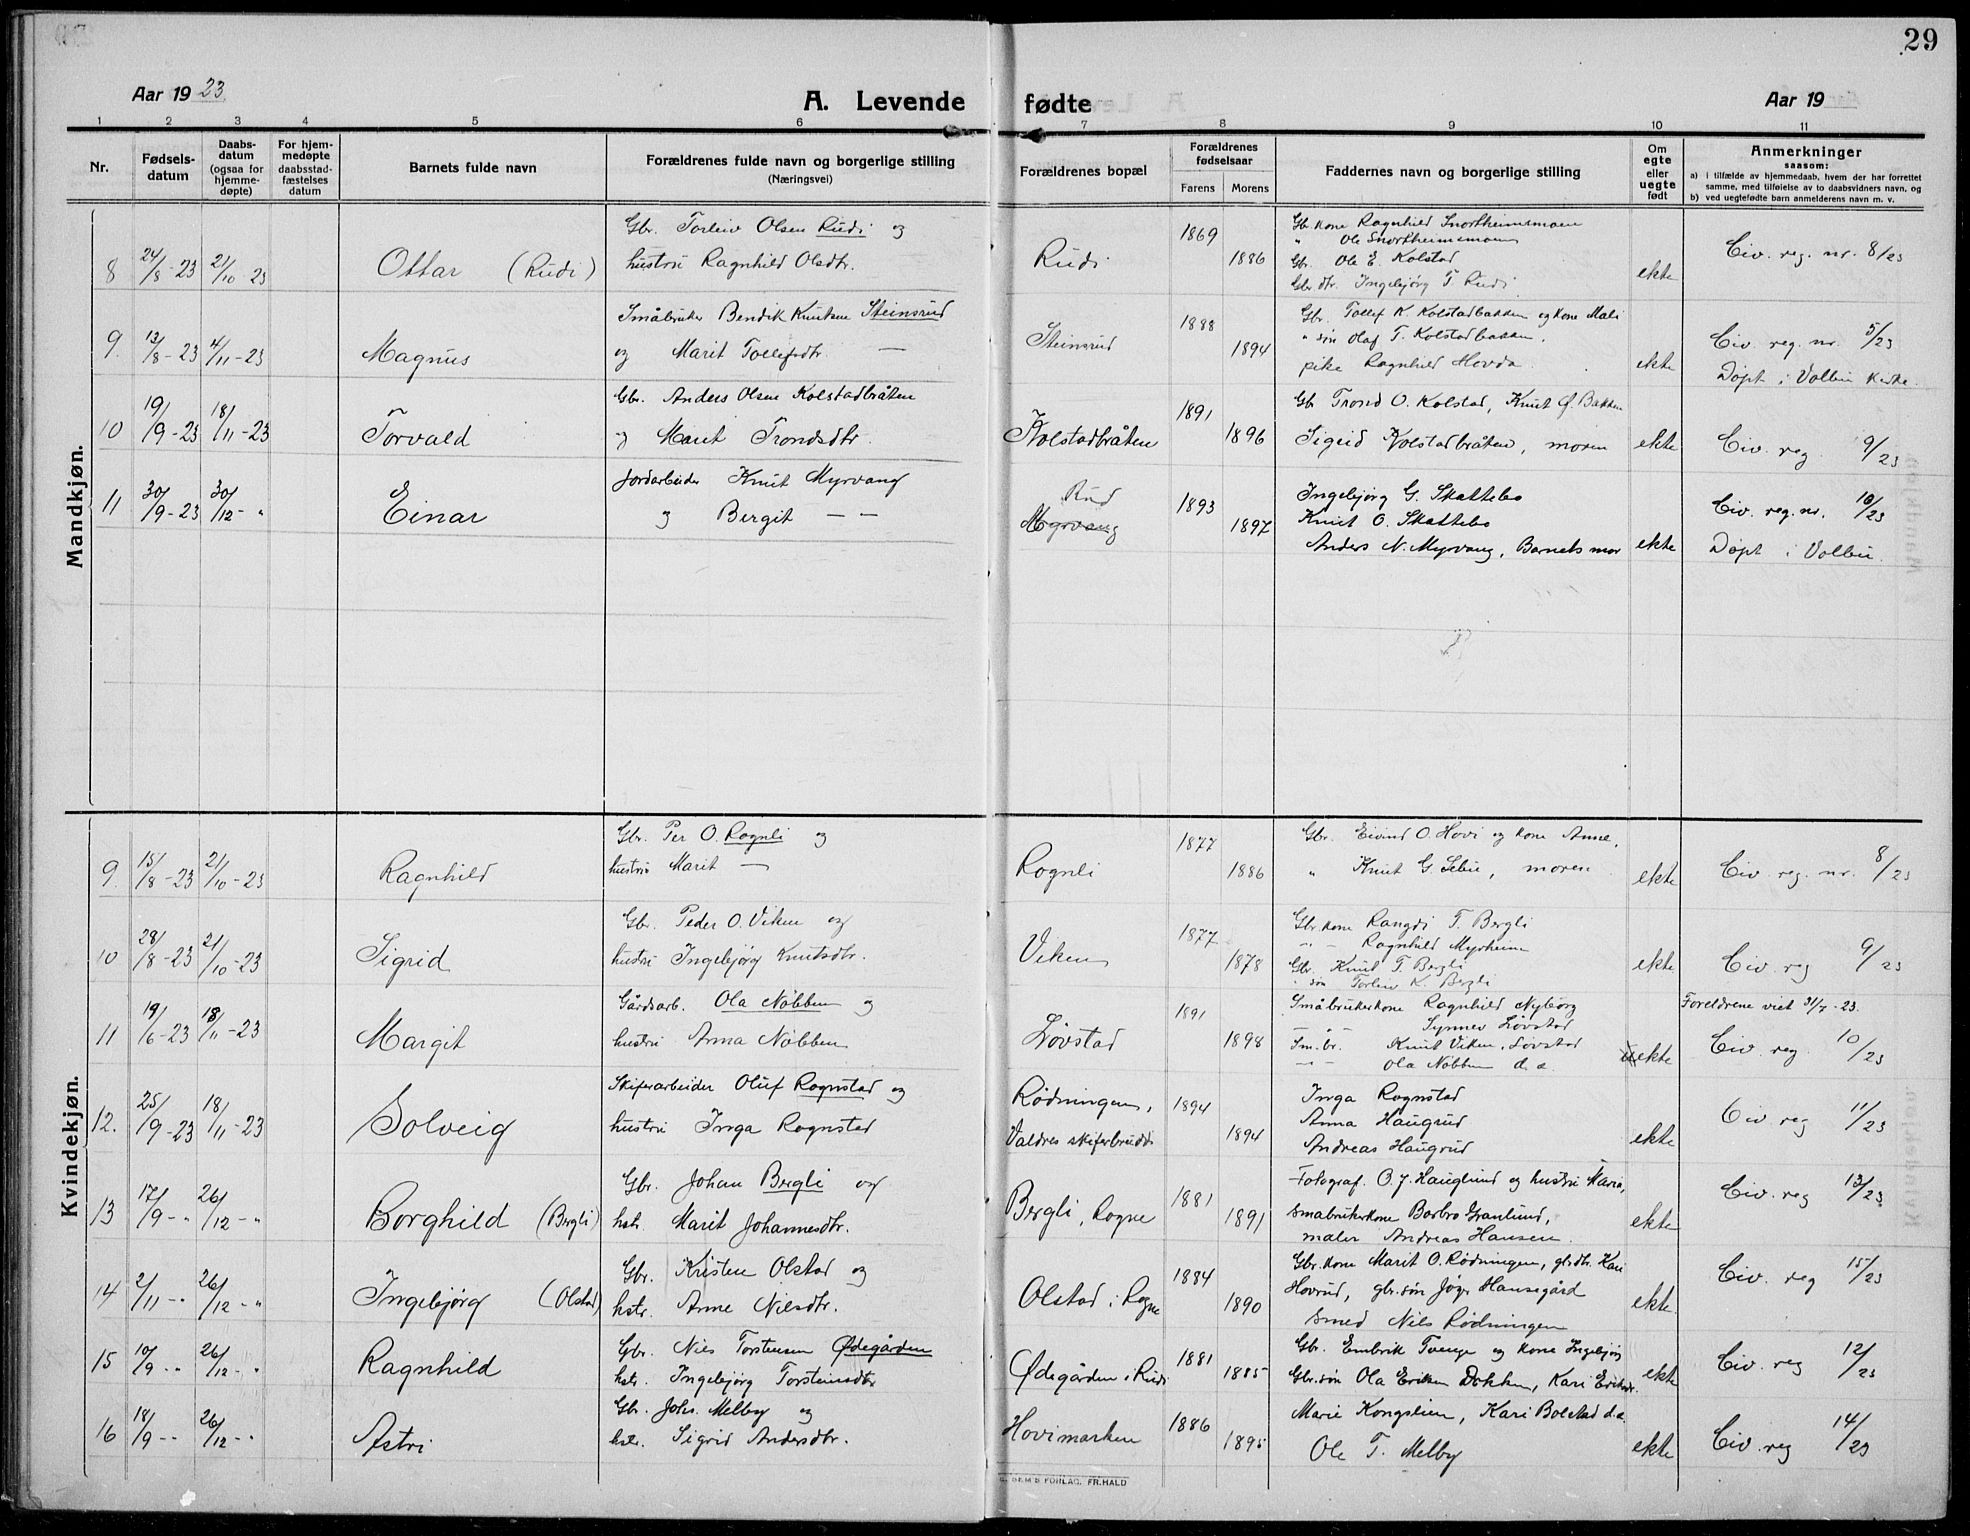 29
Aar 1923
A. Levende fødte
Aar 19
1 2 3 4 5 6 7 8 9 10 11
Nr.
Fødsels-datum
Daabs-datum (ogsaa for hjemme-døpte)
For hjem-medøpte daabsstad-fæstelses datum
Barnets fulde navn
Forældrenes fulde navn og borgerlige stilling
(Næringsvei)
Forældrenes bopæl
Forældrenes fødselsaar
Farens Morens
Faddernes navn og borgerlige stilling
Om egte eller uegte født
Anmerkninger
saasom:
a) i tilfælde av hjemmedaab, hvem der har forrettet samme, med tilføielse av to daabsvidners navn, og
b) ved uegtefødte barn anmelderens navn m. v.
Mandkjøn.
8 24/8-23 21/10 23 Ottar (Rudi)
Gbr. Torleiv Olsen Rudi og
hustru Ragnhild Olsdtr.
Rudi 1869 1886
Gb. kone Ragnhild Snortheimsmoen
" Ole Snortheimsmoen
Gb. Ole E. Kolstad
Gbr. dtr. Ingebjørg T. Rudi
ekte
Civ. reg. nr. 8/23
9. 12/8-23 4/11-23 Magnus
Småbruker Bendik Knutsen Steinsrud
og Marit Tollefsdtr. —
Steinsrud 1888 1894
Gb. Tollef K Kolstadbakken og kone Mali
" søn Olaf T. Kolstadbakken,
pike Ragnhild Hovda.
ekte
Civ. reg. nr. 5/23
Døpt i Volbu kirke.
10 19/9-23 18/11-23 Torvald
Gbr. Anders Olsen Kolstadbråten
og Marit Trondsdtr.
Kolstadbråten 1891 1896
Gb Trond O. Kolstad, Knut Ø. Bakken
Sigrid Kolstadbråten, moren
ekte
Civ. reg. 9/23
11 30/9-23 30/12-" Einar
Jordarbeider Knut Myrvang
og Bergit — —
Rud
Myrvang 1893 1897
Ingebjørg G. Skattebo
Knut O. Skattebo
Anders N. Myrvang, Barnets mor
ekte
Civ. reg. nr. 10/23
Døpt i Volbu.
Kvindekjøn.
9. 15/8-23 21/10-23 Ragnhild
Gbr. Per O. Rognli og
hustru Marit —
Rognli 1877 1886
Gbr. Eivind O. Hovi og kone Anne,
" Knut G. Sebu, moren
ekte
Civ. reg. nr. 8/23
10 28/8-23 21/10-23 Sigrid
Gbr. Peder O. Viken og
hustru Ingebjørg Knutsdtr.
Viken 1877 1878
Gbr kone Rangdi T. Bergli
" - Ragnhild Myrheim
Gbr. Knut T. Bergli
" søn Torleiv K. Bergli
ekte
Civ. reg 9/23
11 19/6-23 18/11-23 Margit
Gårdsarb. Ola Nøbben og
hustru Anna Nøbben
Løvstad 1891 1898
Småbrukerkone Ragnhild Nyborg
— " — Synnev Løvstad
Sm.br. Knut Viken, Løvstad
— " Ola Nøbben d.e.
uekte
Foreldrene viet 31/7-23.
Civ. reg. 10/23
12. 25/9-23 18/11-23 Solveig
Skiferarbeider Oluf Rognstad og
hustru Inga Rognstad
Rødningen,
Valdres skiferbrudd 1894 1894
Inga Rognstad
Anna Haugrud
Andreas Haugrud
ekte
Civ reg 11/23
13 17/9-" 26/12-" Borghild (Bergli)
Gbr. Johan Bergli og
hstr. Marit Johannesdtr.
Bergli, Rogne 1881 1891
Fotograf. O. J. Hauglund og hustru Maria,
småbrukerkone Barbro Granlund,
maler Andreas Hansen.
ekte
Civ. reg 13/23
14 2/11-" 26/12-" Ingebjørg (Olstad)
Gbr. Kristen Olstad og
hstr. Anne Nilsdtr.
Olstad i Rogne 1884 1890
Gbr. kone Marit O. Rødningen, gbrdtr. Kari
Hovrud, gbr. søn Jøger Hansegård
smed Nils Rødningen
ekte
Civ. reg 15/23
15 10/9-" 26/12-" Ragnhild
Gbr. Nils Torstensen Ødegården
hstr. Ingebjørg Torsteinsdtr
Ødegården i Rudi 1881 1885
Gbr. Embrik Tvenge og kone Ingebjørg
Gbr. søn Ola Eriksen Dokken, Kari Eriksdr.
ekte
Civ. reg 12/23
16 18/9-" 26/12-" Astri
Gbr. Johs. Melby og
hstr. Sigrid Andersdtr.
Hovimarken 1886 1895
Marie Kongslien, Kari Bolstad d.e.
Ole T. Melby
ekte
Civ. reg 14/23
SEM'S FORLAG, FR.HALD